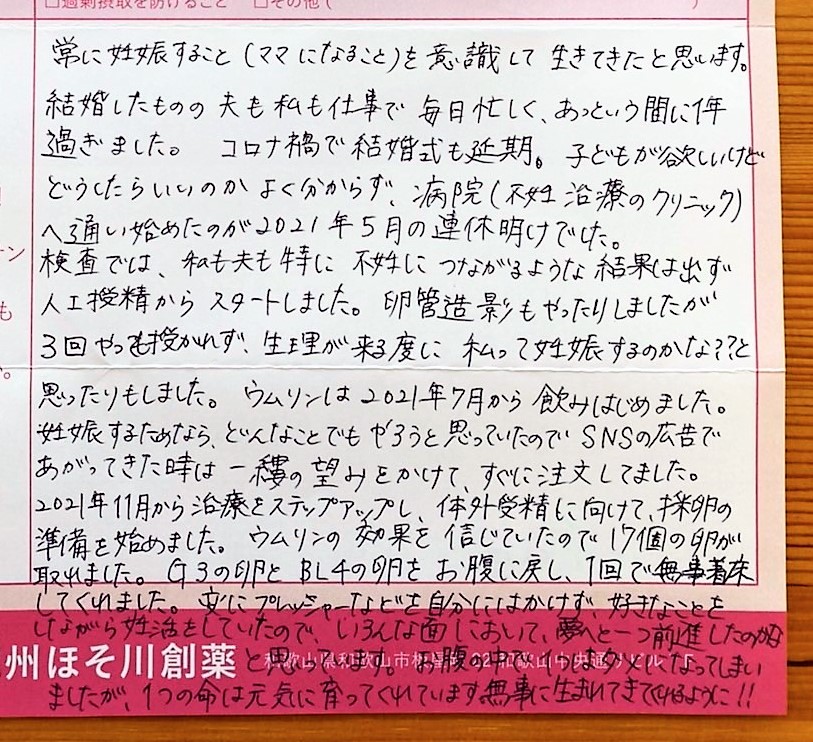 □過剰摂取を防げること □その他( )
常に妊娠すること(ママになること)を意識して生きてきたと思います。
結婚したものの夫も私も仕事で毎日忙しく、あっという間に1年
過ぎました。コロナ禍で結婚式も延期。子どもが欲しいけど
どうしたらいいのかよく分からず、病院(不妊治療のクリニック)
へ通い始めたのが2021年5月の連休明けでした。
検査では、私も夫も特に不妊につながるような結果は出ず
人工授精からスタートしました。卵管造影もやったりしましたが
3回やっても授かれず、生理が来る度に私って妊娠するのかな??と
思ったりもしました。ウムリンは2021年7月から飲みはじめました。
妊娠するためなら、どんなことでもやろうと思っていたのでSNSの広告で
あがってきた時は一縷の望みをかけて、すぐに注文してました。
2021年11月から治療をステップアップし、体外受精に向けて、採卵の
準備を始めました。ウムリンの効果を信じていたので17個の卵が
取れました。G3の卵とBL4の卵をお腹に戻し、1回で無事着床
してくれました。変にプレッシャーなどを自分にはかけず、好きなことを
しながら妊活をしていたので、いろんな面において、夢へと一つ前進したのかな
と思っています。お腹の中で、1つは亡くなってしまい
ましたが、1つの命は元気に育ってくれています無事に生まれてきてくれるように!!
州ほそ川創薬
ン
も
。